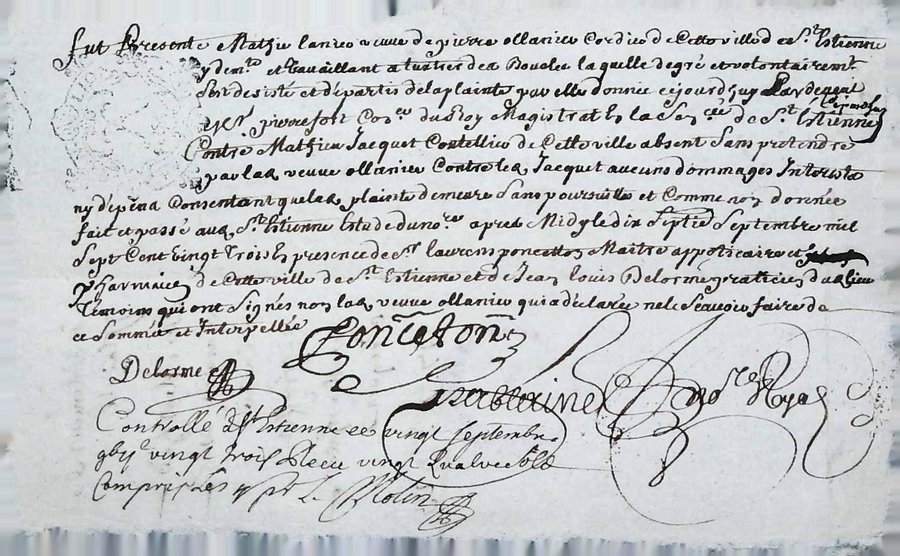 fut Presente Mathie lanier veuve de pierre ollanier Cordier de Cette ville de St Estienne
y demte et travaillant a la quelle de gré et volontairemt
sest desiste et departis de la plainte par elle donnée cejourdhuy Pardevant
Mr pierrefort Coner du Roy Magistrat En la Senée de St Estienne
Contre Mathieu Jacquet Coutellier de Cette ville absent Sans pretendre
par lad veuve ollanier Contre led Jacquet aucuns dommages Interists
ny depens Consentant que lad plainte demeure Sans poursuitte et Comme non donnée
fait et passé aud St Estienne Estude du nore apres Midy le dix Septie Septembre mil
Sept Cent vingt Trois En presence de Sr laurens ponceton Maitre appoticaire et
pharmacien de Cette ville de St Estienne et de Jean Louis Delorme praticien dud lieu
Temoins qui ont Signés non lad veuve ollanier qui a declarée ne le Scavoir faire de
ce Sommée et Interpellée
Ponceton
Delorme
nore Royal
Controllé à St Estienne ce vingt septembre
vingt trois Receu vingt
Compris les Molin